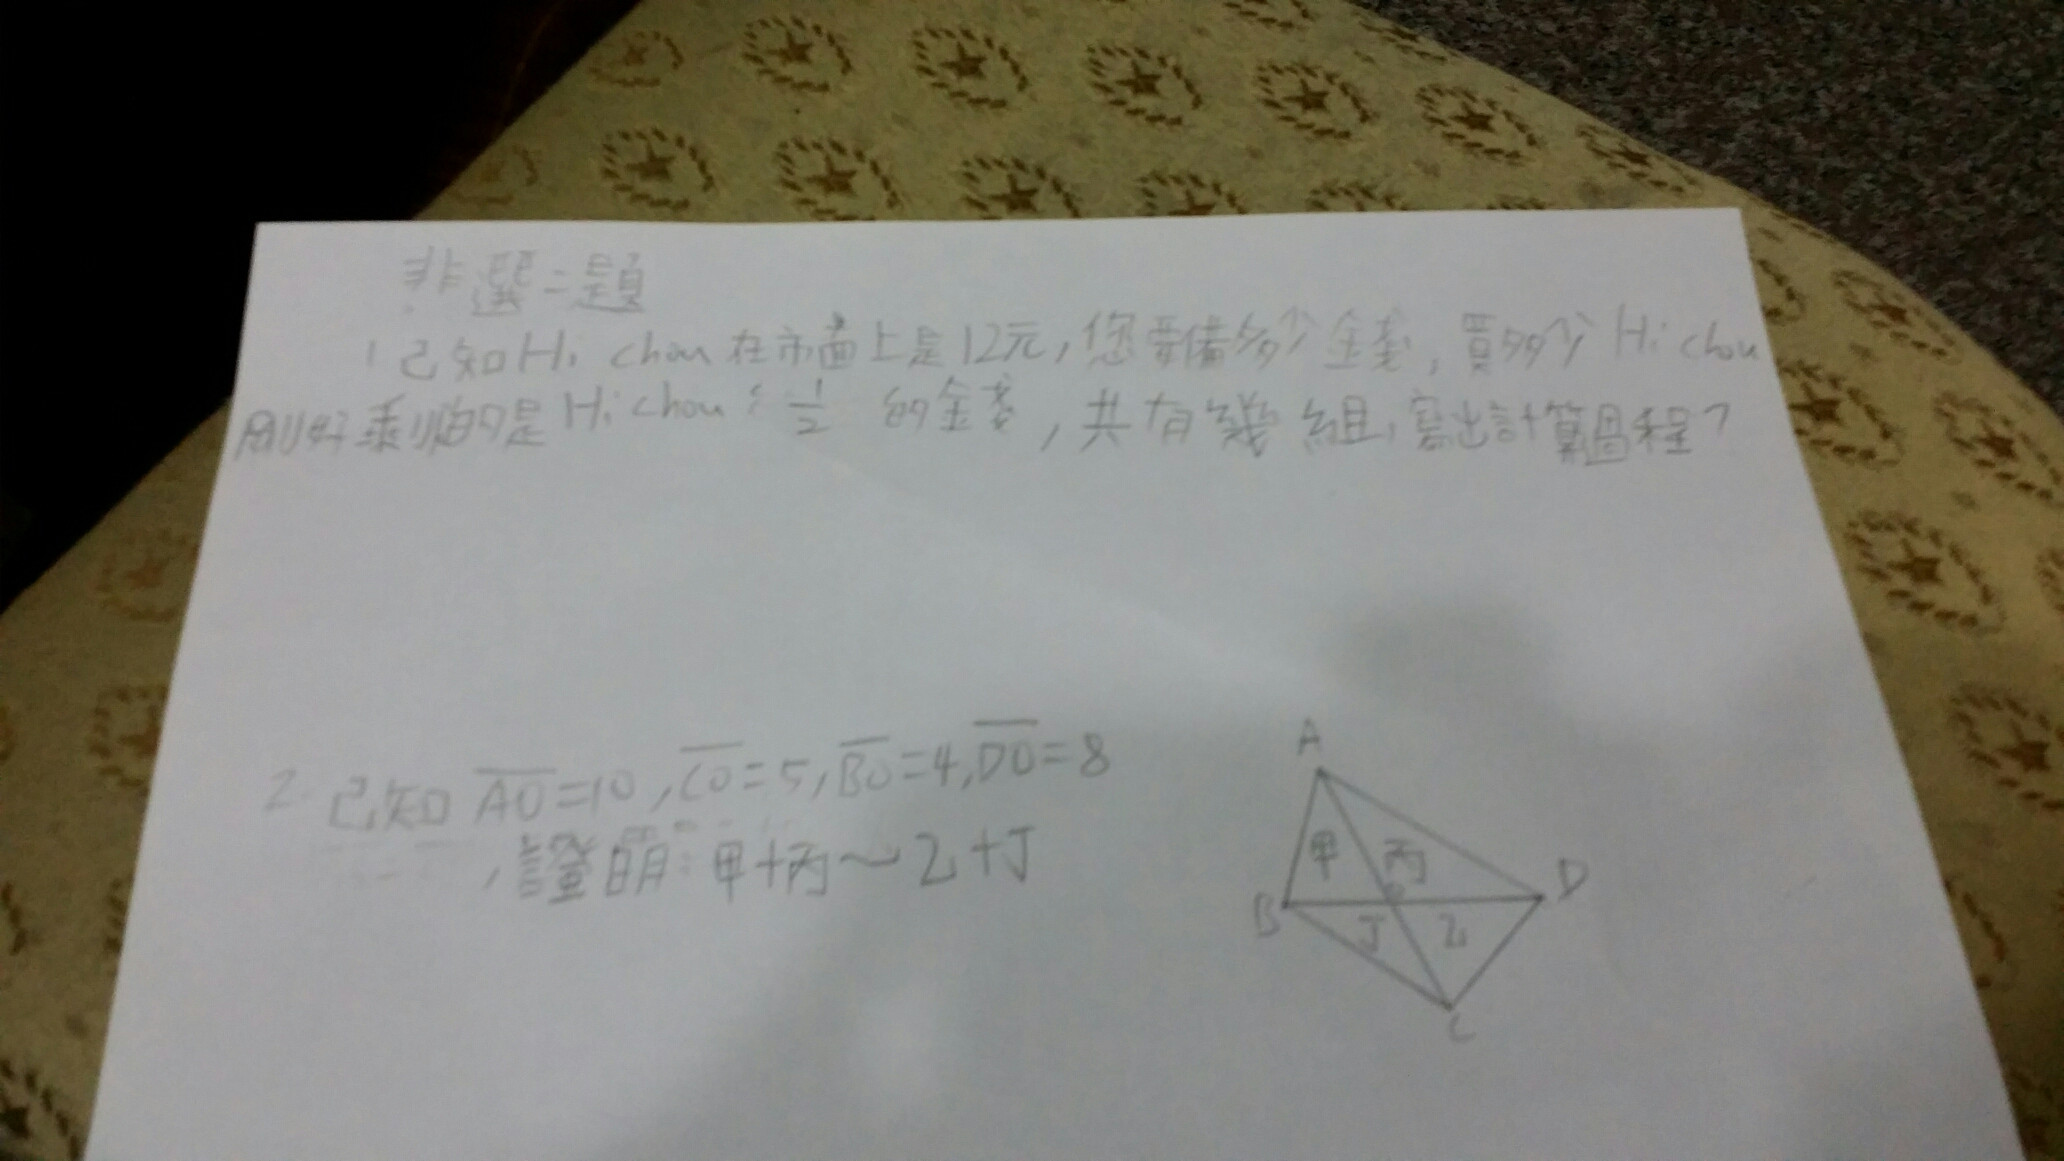 非選二題
1 已知Hi chou在市面上是12元,您要備多少金錢,買多少Hi chou
剛好剩下的是Hi chou 的 1/2 的金錢,共有幾組,寫出計算過程?
2. 已知 AO=10,CO=5,BO=4,DO=8
,證明:甲+丙~乙+丁
A
甲 丙
B O D
丁 乙
C